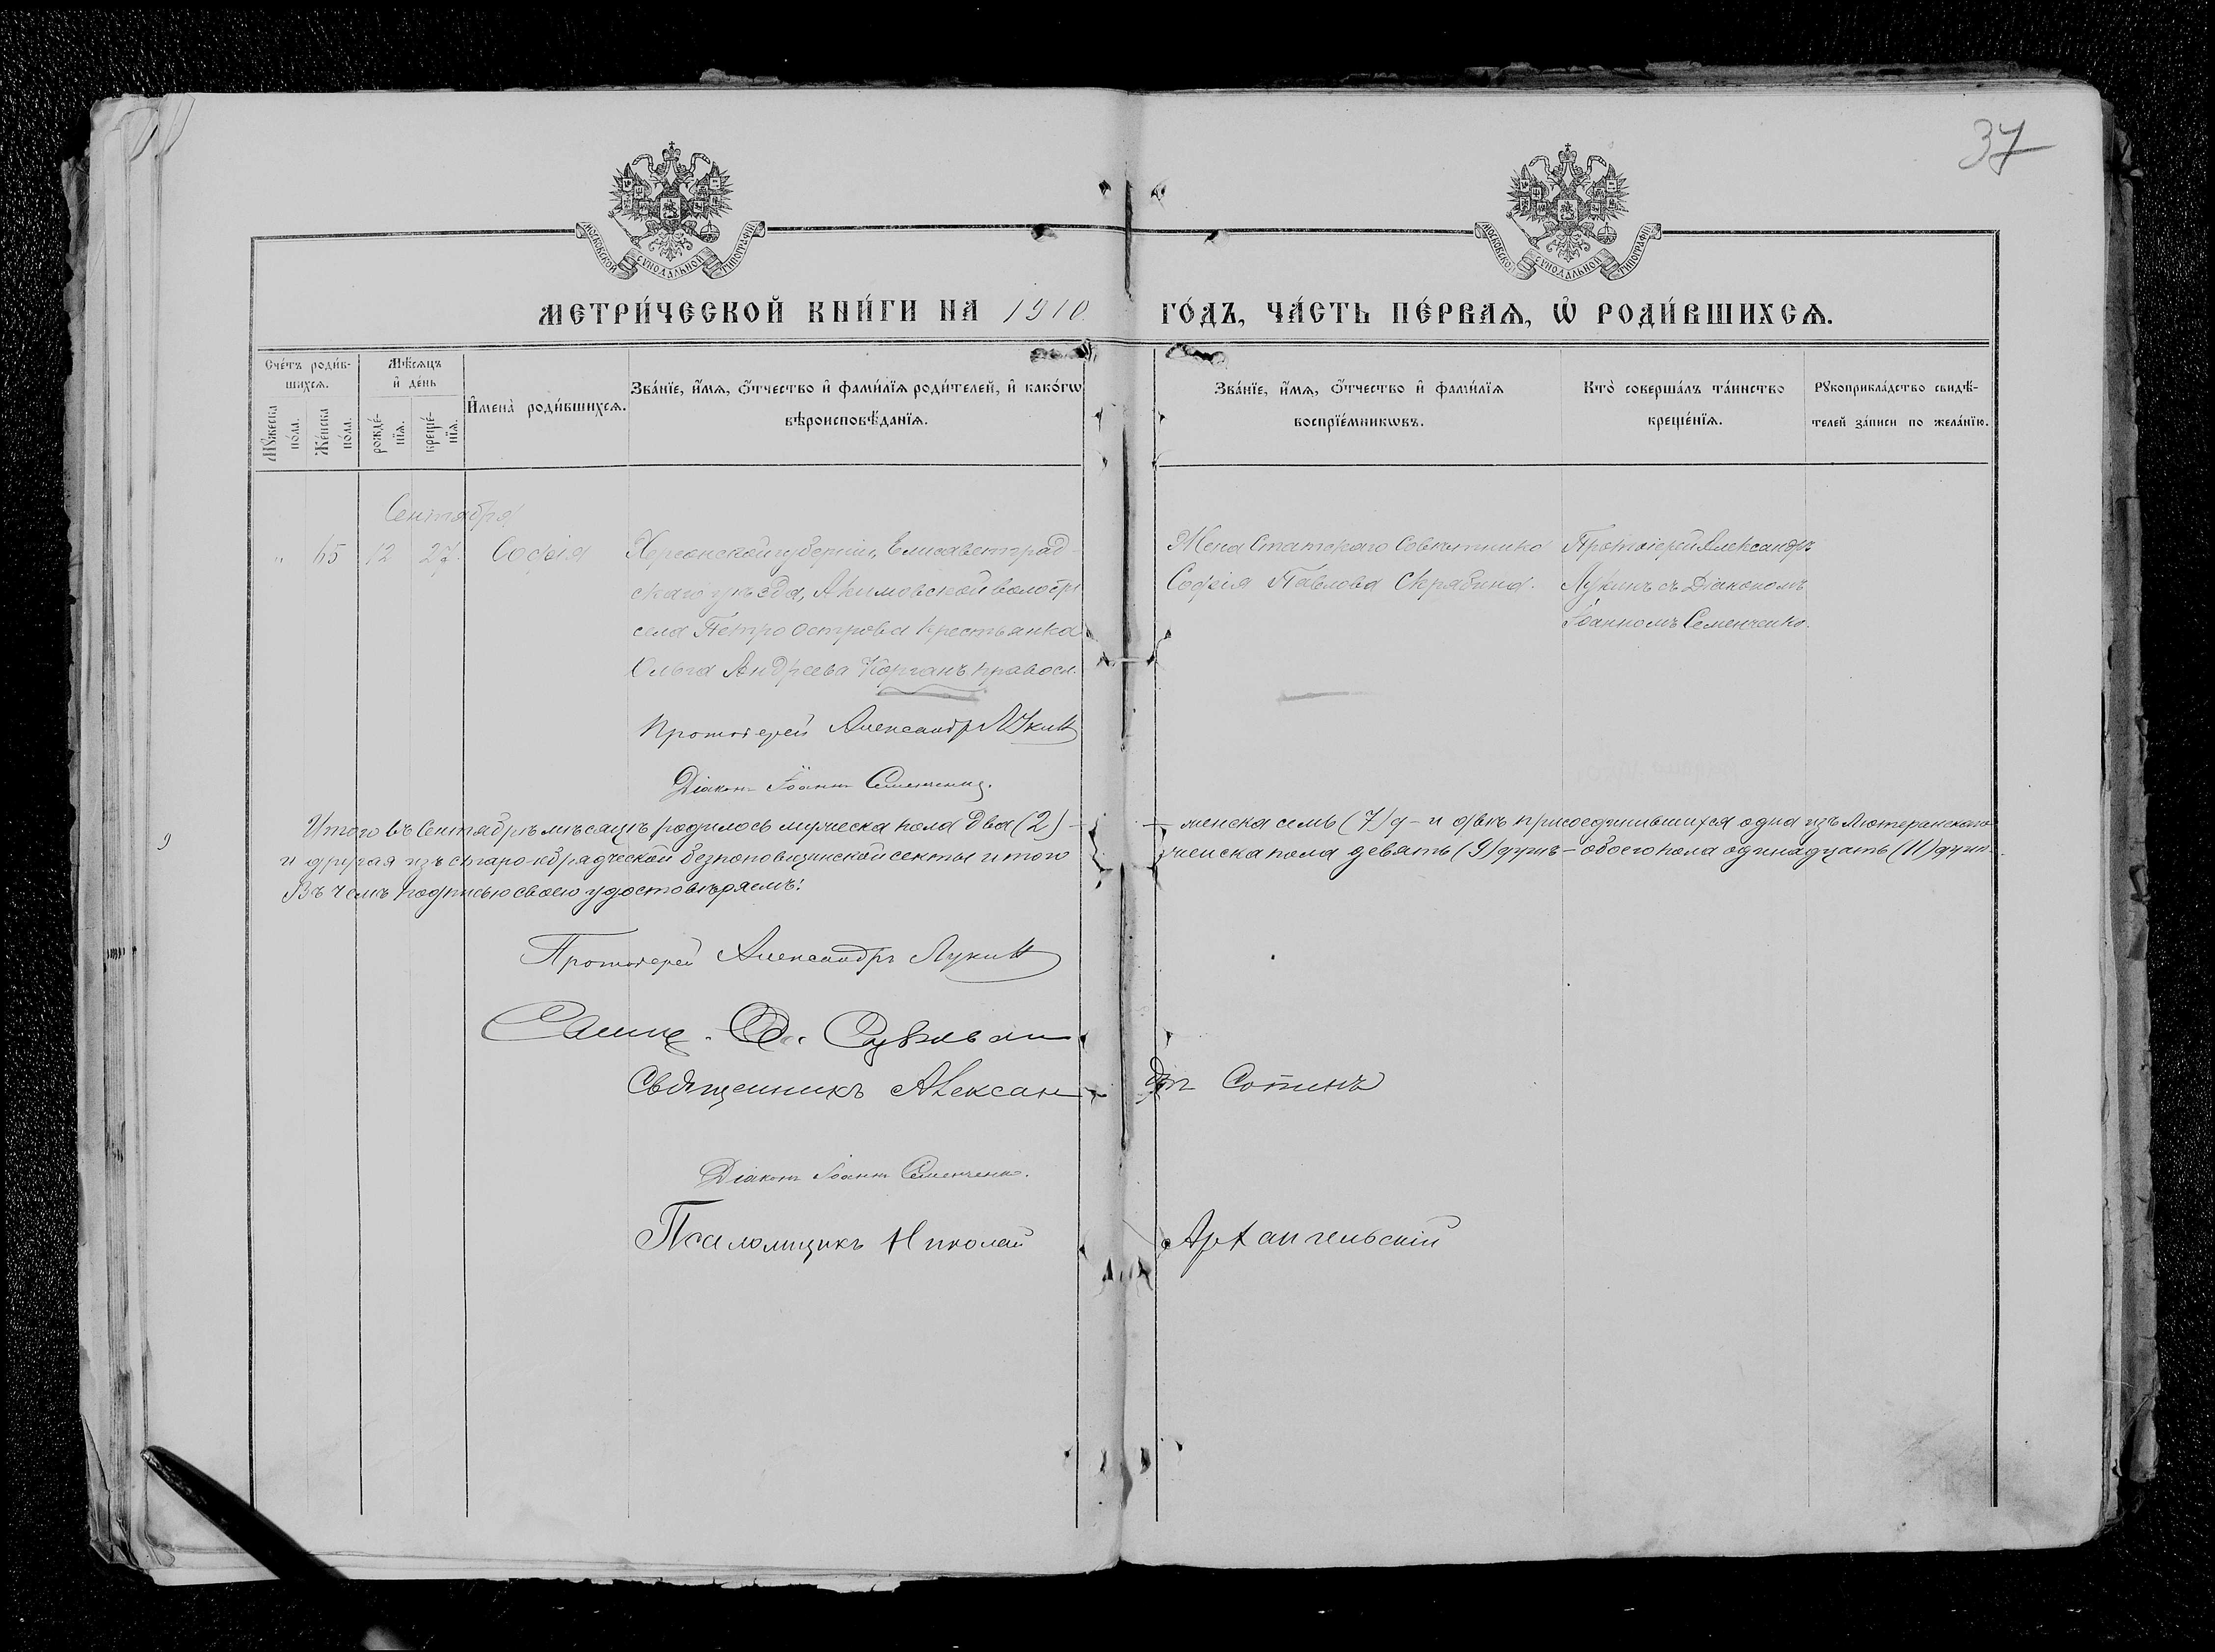 37
МОСКОВСКОЙ СѴНОДАЛЬНОЙ ТИПОГРАФІИ
МОСКОВСКОЙ СѴНОДАЛЬНОЙ ТИПОГРАФІИ
МЕТРИ́ЧЕСКОЙ КНИ́ГИ НА 1910 ГО́ДЪ, ЧА́СТЬ ПЕ́РВАѦ, Ѡ РОДИ́ВШИХСѦ.
Сче́тъ роди́вшихсѧ.
Мꙋ́жеска по́ла.
Же́нска по́ла.
Мѣ́сѧцъ и҆ де́нь
рожде́нїѧ.
креще́нїѧ.
И҆мена̀ роди́вшихсѧ.
Зва́нїе, и҆́мѧ, ѻ҆́тчество и҆ фами́лїѧ роди́телей, и҆ како́гѡ
вѣроисповѣ́данїѧ.
Зва́нїе, и҆́мѧ, ѻ҆́тчество и҆ фами́лїѧ
воспрїе́мникѡвъ.
Кто̀ соверша́лъ та́инство
креще́нїѧ.
Рꙋкоприкла́дство свидѣ́-
телей за́писи по жела́нїю.
Сентября
" 65 12 27 Софія
Херсонской губерніи, Елисаветград-
скаго уѣзда, Акимовской волости
села Петроострова крестьянка
Ольга Андреева Корганъ, правосл.
Жена Статскаго Совѣтника
Софія Павлова Скрябина.
Протоіерей Александръ
Лукинъ съ Діакономъ
Іоанномъ Семенченко.
Протоіерей Александръ Лукин
Діаконъ Іоаннъ Семенченко.
Итого въ Сентябрѣ мѣсяцѣ родилось мужеска пола два (2) — женска семь (7) д — и двѣ присоединившихся одна изъ Лютеранскаго
и другая изъ старо-обрядческой безпоповщинской секты итого женска пола девять (9) душъ — обоего пола одинадцать (11) душъ
Въ чемъ подписью своею удостовѣряемъ:
Протоіерей Александръ Лукин
Священникъ Александръ Сотинъ
Діаконъ Іоаннъ Семенченко.
Псаломщикъ Николай Архангельскій